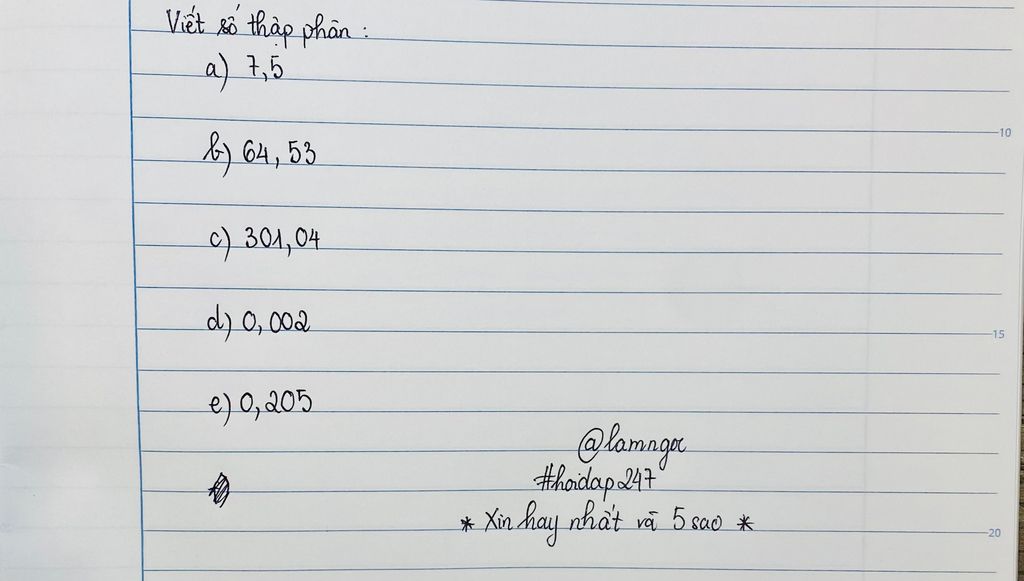 Viết số thập phân :
a) 7,5
b) 64,53
10
c) 301,04
d) 0,002
15
e) 0,205
@lamngoc
#hoidap247
* Xin hay nhất và 5 sao *
20